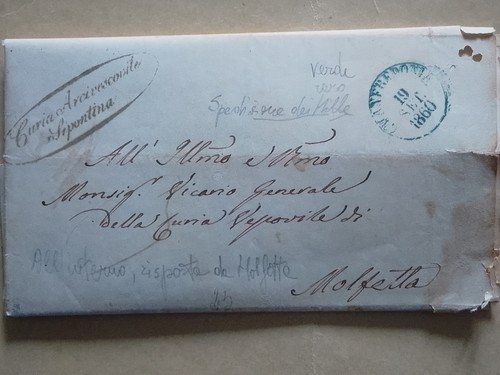 Curia Arcivescovile
Sipontina
verde
vero
Spedizione dei Mille
MANFREDONIA
19
SET.
1860
All' Illmo e Rmo
Monsigr Vicario Generale
della Curia Vescovile di
All'interno, risposta da Molfetta
Molfetta